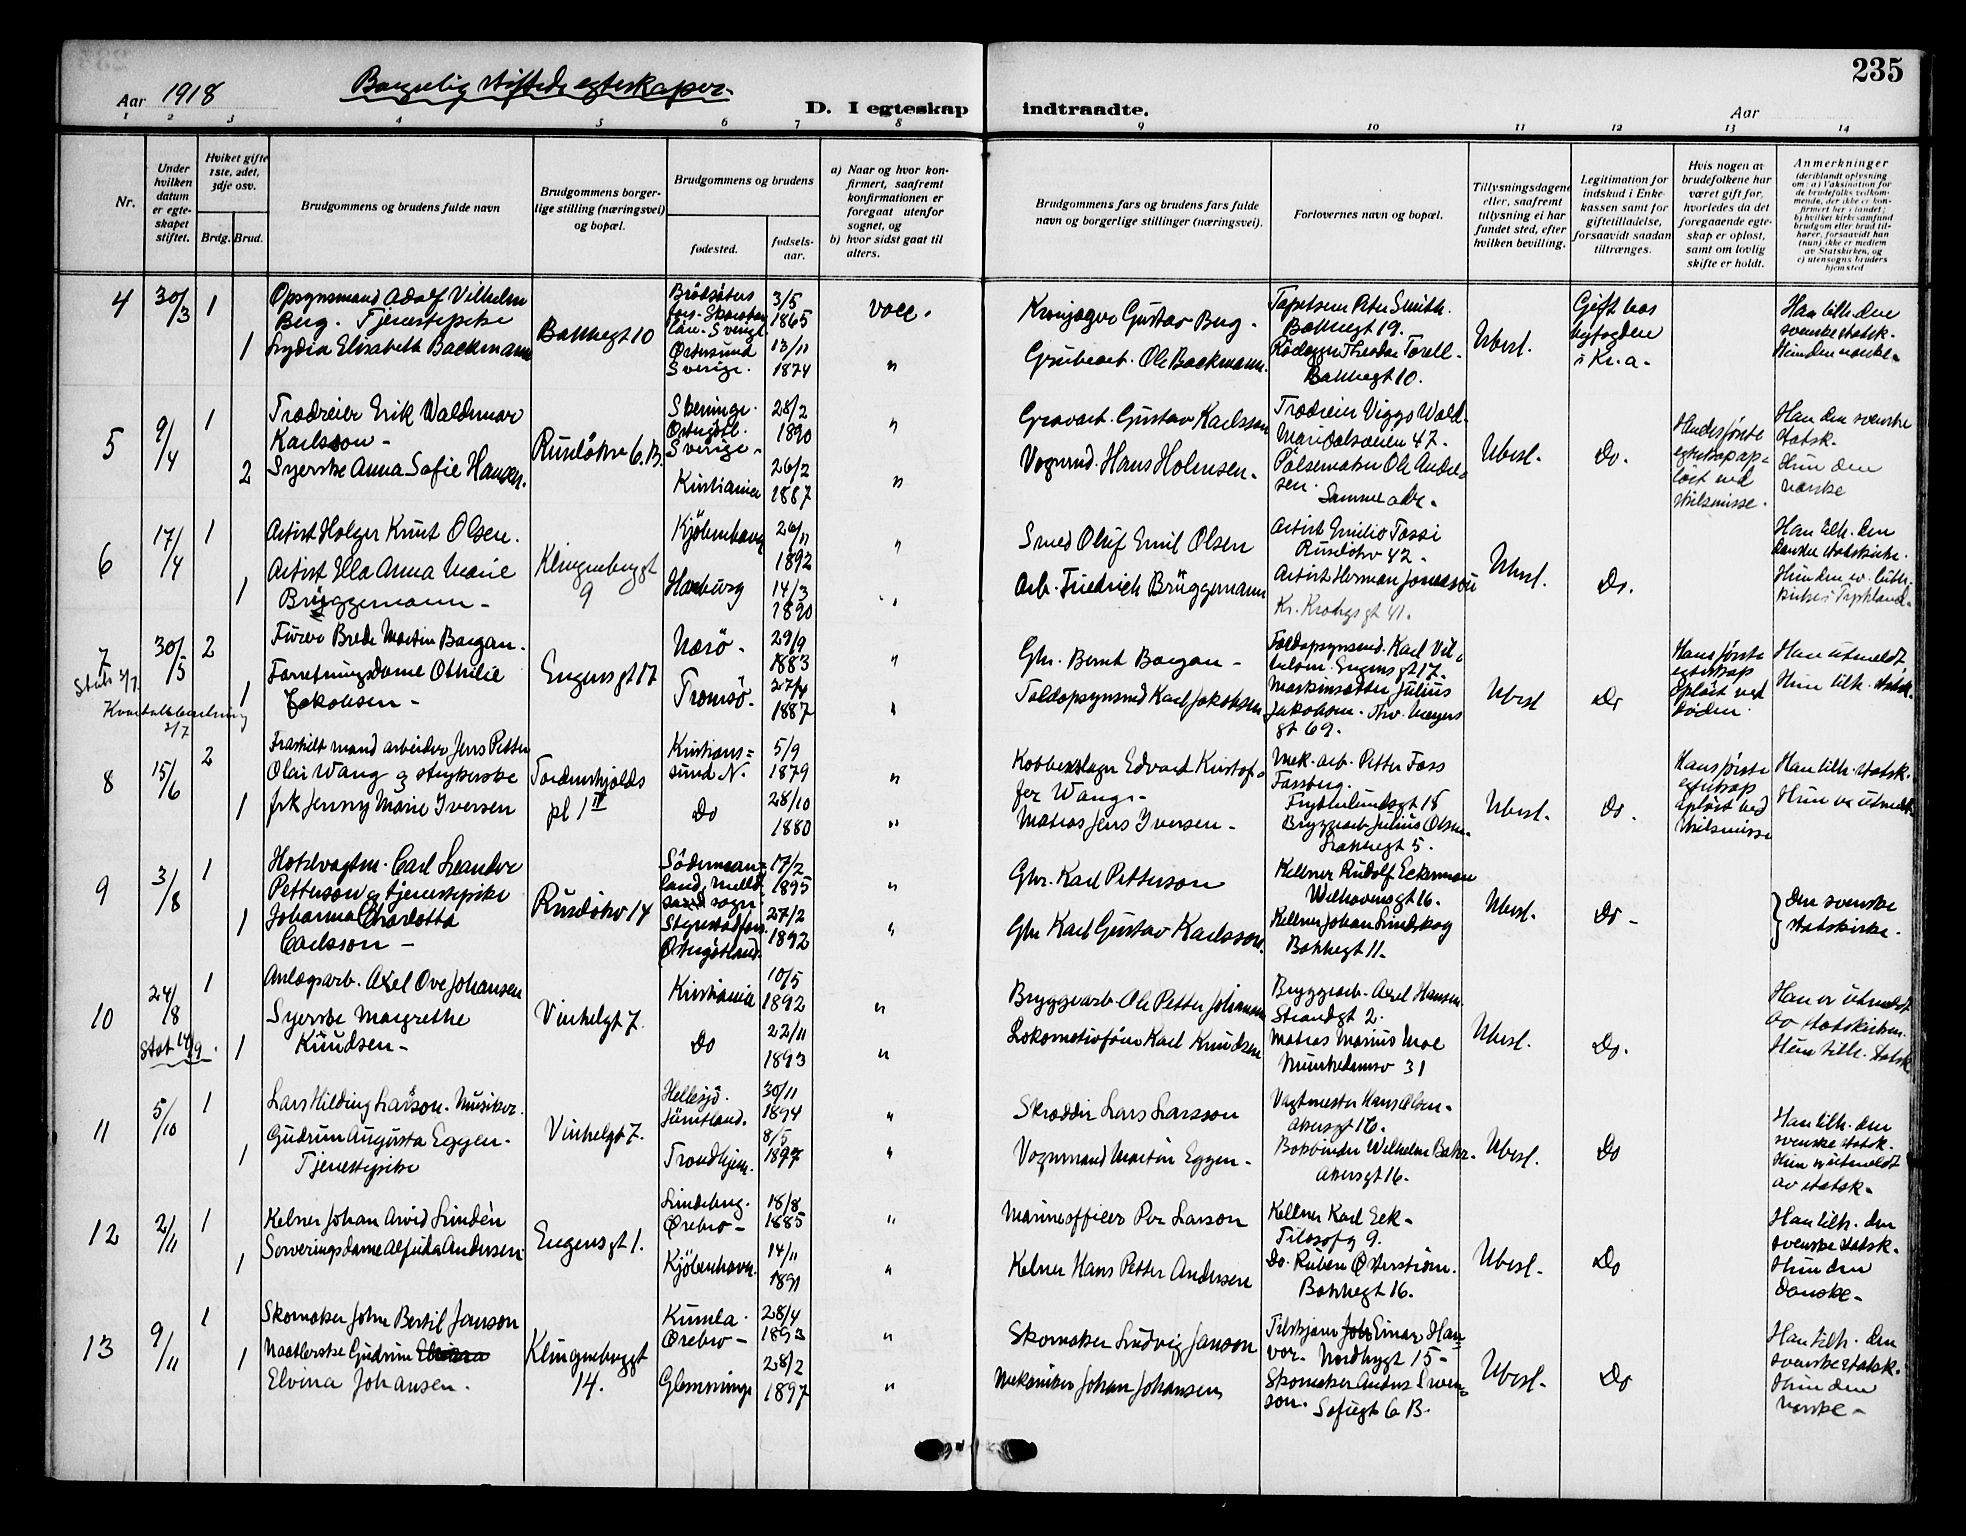 235
Aar 1918
Borgerlig stiftede egteskaper.
D. I egteskap indtraadte.
Aar
1 2 3 4 5 6 7 8 9 10 11 12 13 14
Nr.
Under hvilken datum er egteskapet stiftet.
Hviket gifte 1ste, 2det, 3dje osv.
Brdg. Brud.
Brudgommens og brudens fulde navn
Brudgommens borgerlige stilling (næringsvei) og bopæl.
Brudgommens og brudens
fødested.
fødselsaar.
a) Naar og hvor konfirmert, saafremt konfirmationen er foregaat utenfor sognet, og
b) hvor sidst gaat til alters.
Brudgommens fars og brudens fars fulde navn og borgerlige stillinger (næringsvei).
Forlovernes navn og bopæl.
Tillysningsdagene eller, saafremt tillysning ei har fundet sted, efter hvilken bevilling.
Legitimation for indskud i Enkekassen samt for giftetilladelse, forsaavidt saadan tiltrænges.
Hvis nogen av brudefolkene har været gift før, hvorledes da det foregaaende egteskap er opløst, samt om lovlig skifte er holdt.
Anmerkninger (deriblandt oplysning om: a) Vaksination for de brudefolks vedkommende, der ikke er konfirmert her i landet; b) hvilket kirkesamfund brudgom eller brud tilhører, forsaavidt han (hun) ikke er medlem av Statskirken, og c) utensogns bruders hjemsted
4
30/3
1
1
Opsynsmand Adolf Vilhelm
Berg. Tjenestepike
Lydia Elisabeth Backmann
Bakkegt 10
Sverige
3/5
1865
Østersund
Sverige.
13/11
1874
vacc.
"
Gustav Berg.
Grubearb. Ole Backmann.
Tapetserer Peter Smith.
Bakkegt 19.
Theodor Torell.
Bakkegt 10.
Ubesl.
Gift hos
byfogden
i Kr.a.
Han tilh. den
svenske statsk.
Hun den norske.
5
9/4
1
2
Erik Waldemar
Karlsson
Syerske Anna Sofie Hansen.
Rusløkv 6.B.
Skeninge.
Østergötl.
Sverige
28/2
1890
Kristiania
26/2
1887
"
"
Gravarb. Gustav Karlsson
Vognmd. Hans Holmsen.
Viggo Wald.
Maridalsveien 47.
Pølsemaker Ole Andersen.
Samme adr.
Ubesl.
Do.
Hendes første
egteskap opløst ved
skilsmisse.
Han den svenske
statsk.
Hun den
norske
6
17/4
1
1
Artist Holger Knut Olsen.
Artist Ella Anna Marie
Brüggemann
Klingenbergt
9
Kjöbenhavn
26/11
1892
Hamburg
14/3
1890
"
"
Smed Oluf Emil Olsen
Arb. Friedrich Brüggemann
Artist Emilio Tossi
Rusløkv 42.
Artist Herman
Kr. Krohgs gt 41.
Ubesl.
Do.
Han tilh. den
danske statskirke.
Hun den ev. luth.
kirke i Tyskland.
7
30/5
Stat. 3/7.
Kvartalsberetning
2/7
2
1
Brede Martin Borgan.
Forretningsdame Othilie
Jakobsen
Engensgt 17
Nærö.
29/9
1883
Tromsö.
27/4
1887
"
"
Gbr. Bernt Borgan
Toldopsynsmd Karl Jakobsen
Toldopsynsmd. Karl Vilhelm. Engensgt 17.
Maskinsætter Julius
Jakobsen. Thv. Meyers
gt 69.
Ubesl
Do
Hans første
egteskap
opløst ved
døden.
Han utmeldt.
Hun tilh. statsk.
8
15/6
2
1
Fraskilt mand arbeider Jens Petter
Olai Wang og strykerske
frk Jenny Marie Iversen
Tordenskjolds
pl 1 II
Kristianssund N.
5/9
1879
Do
28/10
1880
"
"
Kobberslager Edvard Kristoffer Wang
Matros Jens Iversen
Mek. arb. Petter Foss
Fossberg.
Frydenlundsgt 15
Bryggearb. Julius Olsen
Løkkegt 5.
Ubesl.
Do.
Hans første
egteskap
opløst ved
skilsmisse
Han tilh. statsk.
Hun er utmeldt
9
3/8
1
1
Hotelvagtm. Carl Leander
Petterson og tjenestepike
Johanna Charlotta
Carlsson
Rusløkv 14
Södermanland,
sogn.
17/2
1895
Østergötland.
27/2
1892
"
"
Gbr. Karl Petterson
Gbr Karl Gustav Karlsson.
Kellner Rudolf Eckerman
Welhavensgt 16.
Kellner Johan Lindskog
Bakkegt 11.
Ubesl.
Do
Den svenske
statskirke.
10
24/8
Stat 14/9.
1
1
Anlægsarb. Axel Ove Johansen
Syerske Margrethe
Knudsen
Vinkelgt 7.
Kristiania
10/5
1892
Do
22/11
1893
"
"
Bryggearb. Ole Petter Johansen
Lokomotivfører Karl Knudsen
Bryggearb. Axel Hansen
Strandgt 2.
Matros Marius Moe
Munkedamsv 31
Ubesl.
Do.
Han er utmeldt
av statskirken.
Hun tilh. statsk
11
5/10
1
1
Lars Hilding Larsson. Musiker.
Gudrun Augusta Eggen.
Tjenestepike
Vinkelgt 7.
Hellesjö.
Jämtland.
30/11
1894
Trondhjem.
8/5
1897
"
"
Skrædder Lars Larsson
Vognmand Martin Eggen
Vagtmester Hans Olsen
Akersgt 16.
Bokbinder Wilhelm
Akersgt 16.
Ubesl.
Do
Han tilh. den
svenske statsk.
Hun er utmeldt
av statsk.
12
2/11
1
1
Kelner Johan Arvid Lindén
Serveringsdame Alfrida Andersen.
Engensgt 1.
Lindeberg.
Ørebro
18/8
1885
Kjöbenhavn.
14/11
1891
"
"
Marineofficer Per Larson
Kelner Hans Petter Andersen
Kellner Karl Eek
Filosofg 9.
Do. Ruben Østerström.
Bakkegt 16.
Ubesl.
Do
Han tilh. den
svenske statsk.
Hun den
danske
13
9/11
1
1
Skomaker John Bertil Janson
Gudrun
Elvina Johansen.
Klingenbergt
14.
Kumla.
Ørebro
28/4
1893
Glemminge
28/2
1897
"
"
Skomaker Ludvig Janson
Mekaniker Johan Johansen
Einar
Nordbygt 15
Skomaker Anders Svenson.
Sofiegt 6 B.
Ubesl.
Do
Han tilh. den
svenske statsk.
Hun den
norske